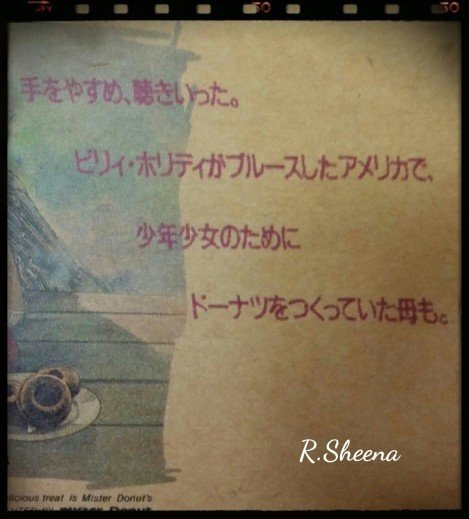 手をやすめ、聴きいった。
ビリィ・ホリディがブルースしたアメリカで、
少年少女のために
ドーナツをつくっていた母も。
R.Sheena
licious treat is Mister Donut's
BY mister Donut
30
30